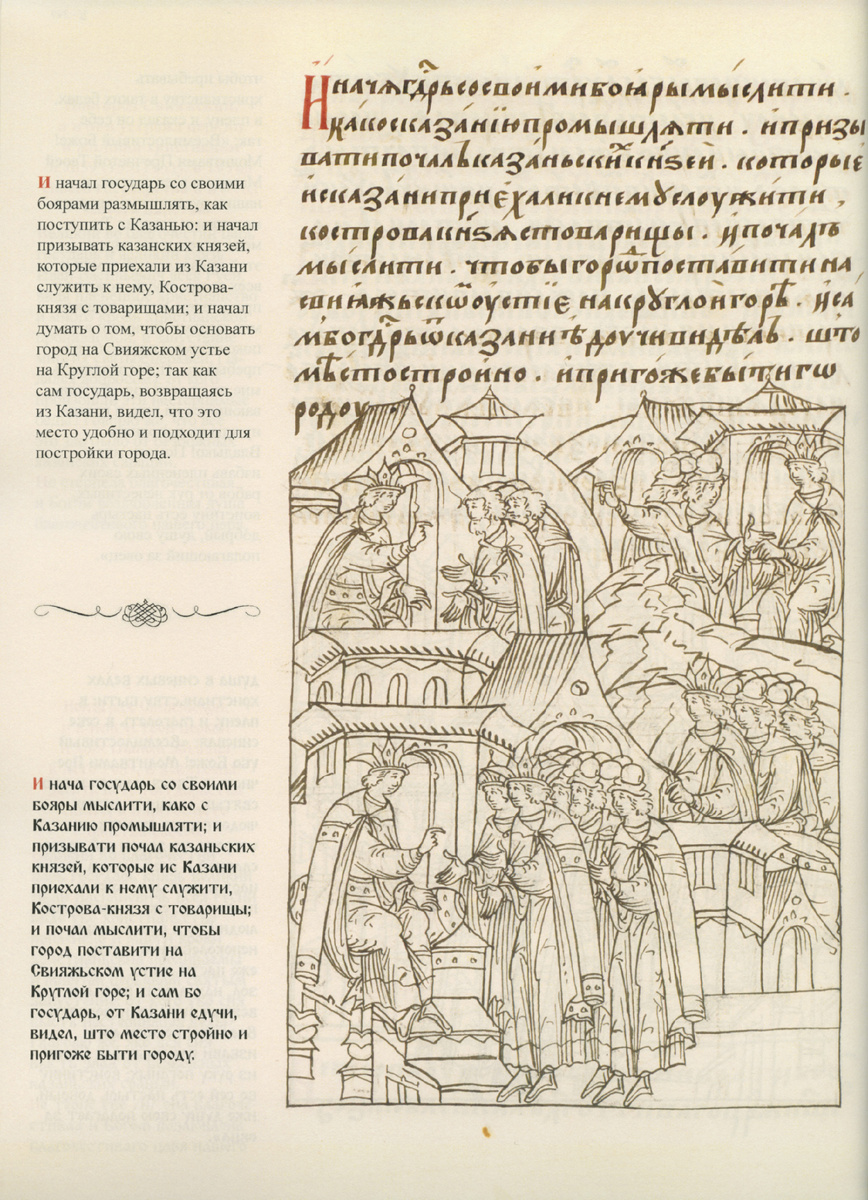 И начал государь со своими
боярами размышлять, как
поступить с Казанью; и начал
призывать казанских князей,
которые приехали из Казани
служить к нему, Кострова-
князя с товарищами; и начал
думать о том, чтобы основать
город на Свияжском устье
на Круглой горе; так как
сам государь, возвращаясь
из Казани, видел, что это
место удобно и подходит для
постройки города.
И нача государь со своими
бояры мыслити, како с
Казанию промышляти; и
призывати почал казаньских
князей, которые ис Казани
приехали к нему служити,
Кострова-князя с товарищы;
и почал мыслити, чтобы
город поставити на
Свияжьском устие на
Круглой горе; и сам бо
государь, от Казани едучи,
видел, што место стройно и
пригоже быти городу.
Иначѧгдⷭ҇рьсосвоимибоꙗрымыслити .
какосказанїюпромышлѧти . ипризы
ватипочалъказаньскиⷯкнѕей . которые
исказаниприѣхаликнемꙋслоужити ,
костровакнѕѧстоварищы . ипочалъ
мыслити . чтобыгорѡⷣпоставитина
свиꙗжьскѡⷨоустїенакрꙋглойгорѣ . иса
мбогдⷭ҇рьѿказаниѣдоучивидѣлъ . што
мѣстостройно . ипригожебытигѡ
родоу